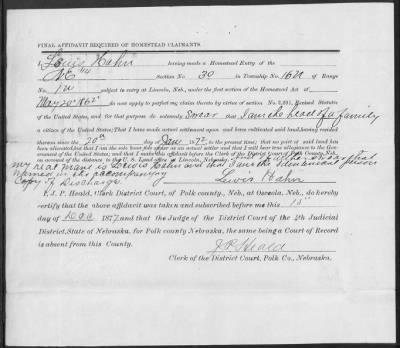 FINAL AFFIDAVIT REQUIRED OF HOMESTEAD CLAIMANTS.
I, Louis Hahn having made a Homestead Entry of the
NE 1/4 Section No. 30 in Township No. 16 N of Range
No. 1 W subject to entry at Lincoln, Neb., under the first section of the Homestead Act of
May 20th 1862 do now apply to perfect my claim thereto by virtue of section No. 2,291, Revised Statutes
of the United States, and for that purpose do solemnly Swear that I am the head of a family
a citizen of the United States; That I have made actual settlement upon and have cultivated said land, having resided
thereon since the 20th day of Jany 1872 to the present time; that no part of said land has
been alienated, but that I am the sole bona fide owner as an actual settler and that I will bear true allegiance to the Gov-
ernment of the United States; and that I make this affidavit before the Clerk of the District Court of Polk County, Neb.,
on account of the distance to the U. S. Land office at Lincoln, Nebraska, and further swear that
my real name is Lewis Hahn and that I am the identical person
named in the accompanying
Copy of Discharge. Lewis Hahn
I, J. P. Heald, Clerk District Court, of Polk county, Neb., at Osceola, Neb., do hereby
certify that the above affidavit was taken and subscribed before me this 15"
day of Dec 1877, and that the Judge of the District Court of the 4th Judicial
District, State of Nebraska, for Polk county Nebraska, the same being a Court of Record
is absent from this County.
J P Heald
Clerk of the District Court, Polk Co., Nebraska.